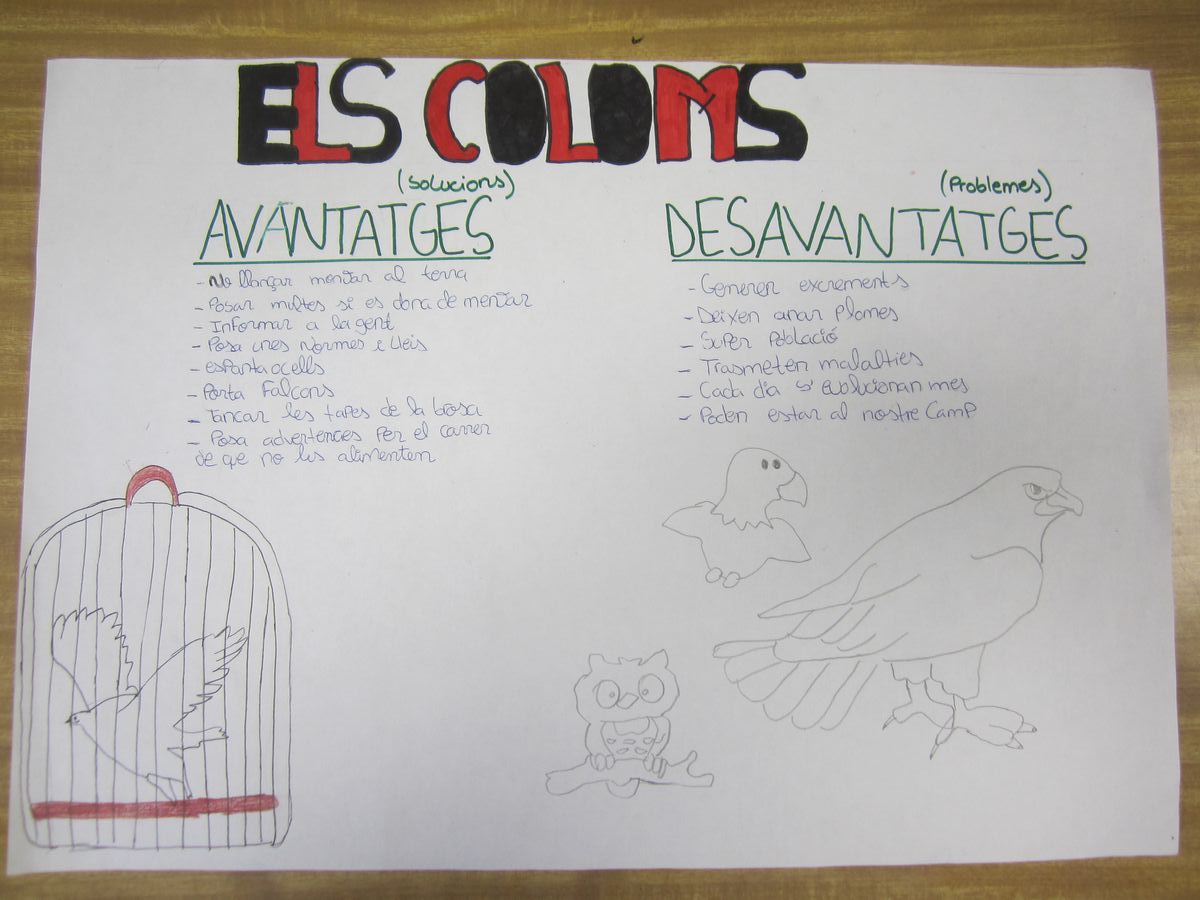 ELS COLOMS
(Solucions)
AVANTATGES
- No llançar menjar al terra
- Posar multes si es dona de menjar
- Informar a la gent
- Posa unes Normes e lleis
- espanta ocells
- Porta Falcons
- Tancar les tapes de la brosa
- Posa advertences Per el carrer
de que no lis alimenten
(Problemes)
DESAVANTATGES
- Generen excrements
- Deixen anar Plomes
- Super Població
- Trasmeten malalties
- Cada dia s'evolucionan mes
- Poden estar al nostre Camp